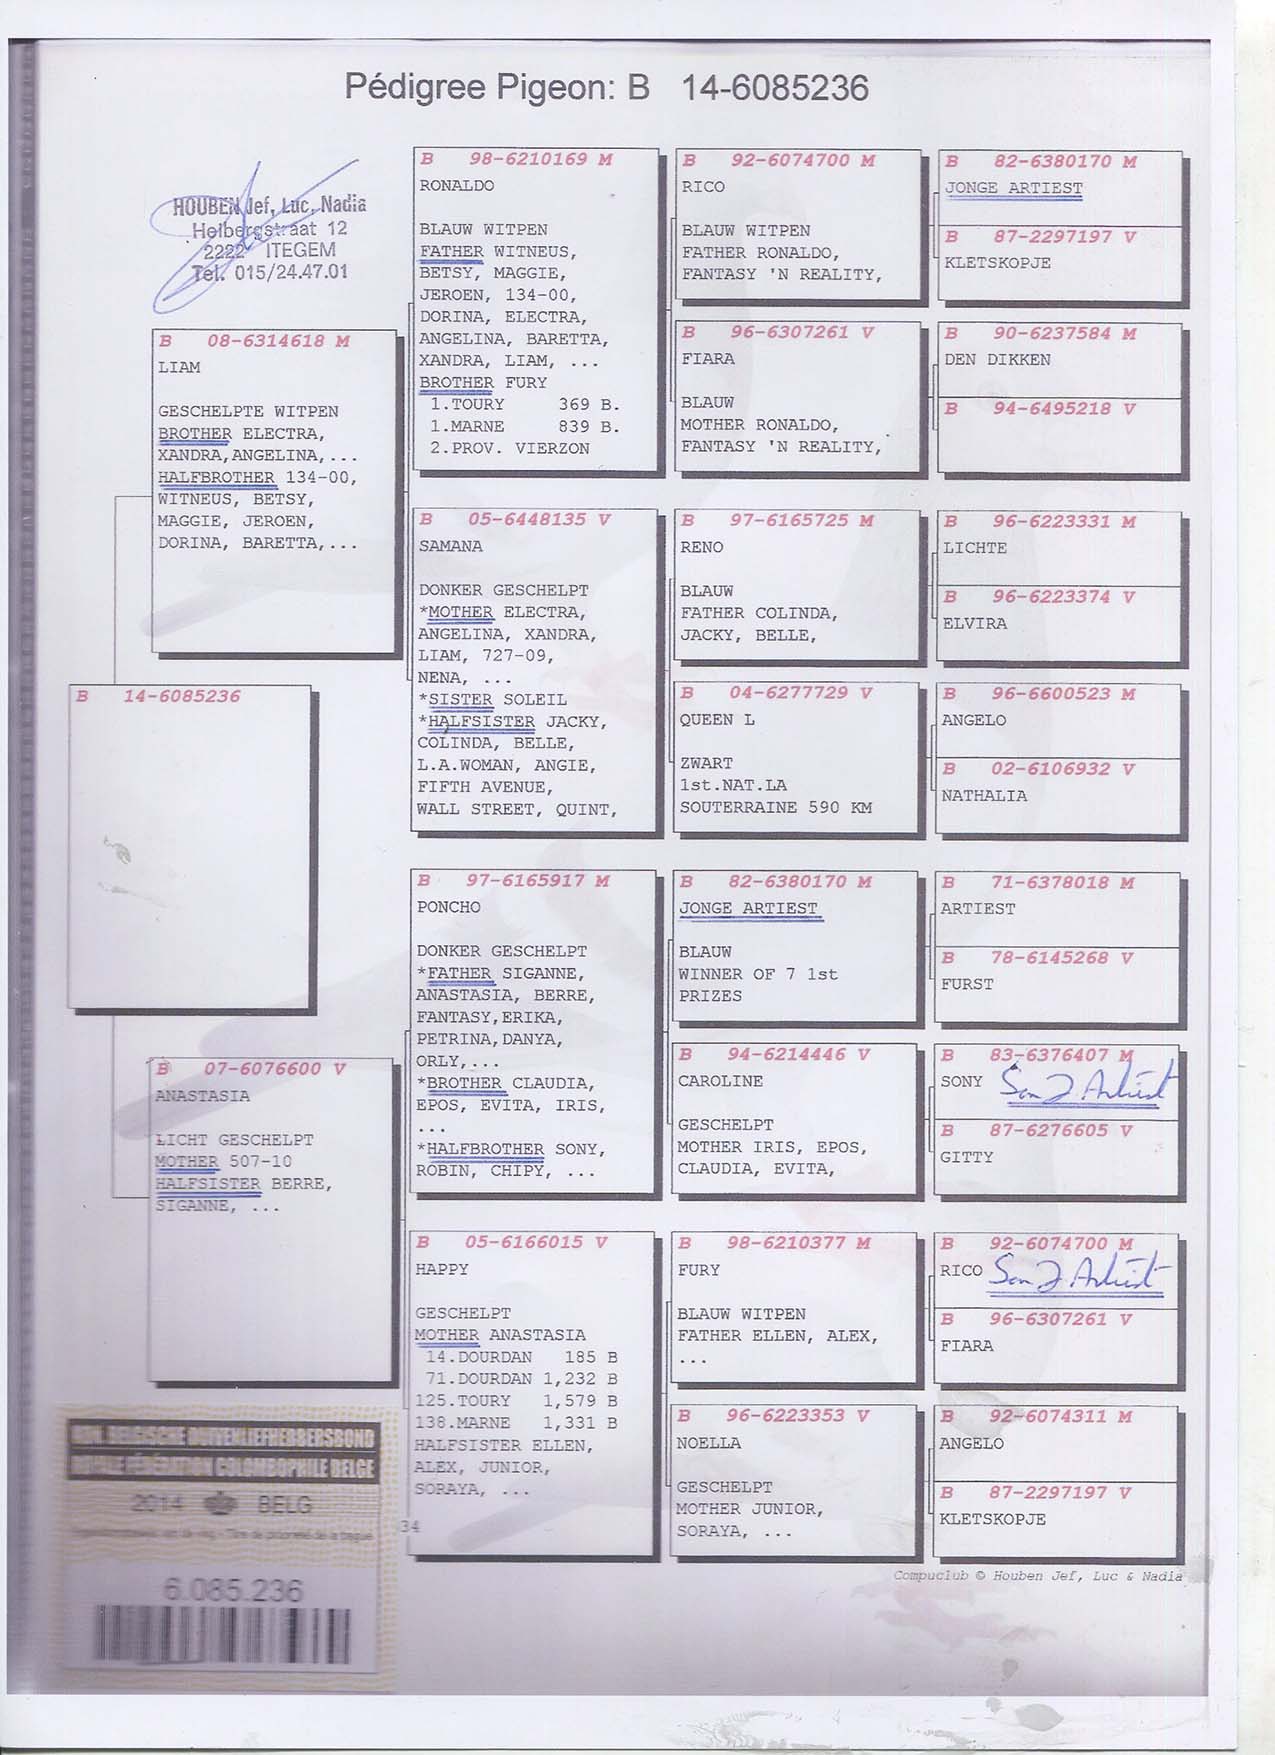 Pédigree Pigeon: B 14-6085236
HOUBEN Jef, Luc, Nadia
Helbergstraat 12
2222 ITEGEM
Tel. 015/24.47.01
B 14-6085236
B 08-6314618 M
LIAM
GESCHELPTE WITPEN
BROTHER ELECTRA,
XANDRA,ANGELINA,...
HALFBROTHER 134-00,
WITNEUS, BETSY,
MAGGIE, JEROEN,
DORINA, BARETTA,...
B 07-6076600 V
ANASTASIA
LICHT GESCHELPT
MOTHER 507-10
HALFSISTER BERRE,
SIGANNE, ...
B 98-6210169 M
RONALDO
BLAUW WITPEN
FATHER WITNEUS,
BETSY, MAGGIE,
JEROEN, 134-00,
DORINA, ELECTRA,
ANGELINA, BARETTA,
XANDRA, LIAM, ...
BROTHER FURY
1.TOURY 369 B.
1.MARNE 839 B.
2.PROV. VIERZON
B 05-6448135 V
SAMANA
DONKER GESCHELPT
*MOTHER ELECTRA,
ANGELINA, XANDRA,
LIAM, 727-09,
NENA, ...
*SISTER SOLEIL
*HALFSISTER JACKY,
COLINDA, BELLE,
L.A.WOMAN, ANGIE,
FIFTH AVENUE,
WALL STREET, QUINT,
B 97-6165917 M
PONCHO
DONKER GESCHELPT
*FATHER SIGANNE,
ANASTASIA, BERRE,
FANTASY,ERIKA,
PETRINA,DANYA,
ORLY,...
*BROTHER CLAUDIA,
EPOS, EVITA, IRIS,
...
*HALFBROTHER SONY,
ROBIN, CHIPY, ...
B 05-6166015 V
HAPPY
GESCHELPT
MOTHER ANASTASIA
14.DOURDAN 185 B
71.DOURDAN 1,232 B
125.TOURY 1,579 B
138.MARNE 1,331 B
HALFSISTER ELLEN,
ALEX, JUNIOR,
SORAYA, ...
B 92-6074700 M
RICO
BLAUW WITPEN
FATHER RONALDO,
FANTASY 'N REALITY,
B 96-6307261 V
FIARA
BLAUW
MOTHER RONALDO,
FANTASY 'N REALITY,
B 97-6165725 M
RENO
BLAUW
FATHER COLINDA,
JACKY, BELLE,
B 04-6277729 V
QUEEN L
ZWART
1st.NAT.LA
SOUTERRAINE 590 KM
B 82-6380170 M
JONGE ARTIEST
BLAUW
WINNER OF 7 1st
PRIZES
B 94-6214446 V
CAROLINE
GESCHELPT
MOTHER IRIS, EPOS,
CLAUDIA, EVITA,
B 98-6210377 M
FURY
BLAUW WITPEN
FATHER ELLEN, ALEX,
...
B 96-6223353 V
NOELLA
GESCHELPT
MOTHER JUNIOR,
SORAYA, ...
B 82-6380170 M
JONGE ARTIEST
B 87-2297197 V
KLETSKOPJE
B 90-6237584 M
DEN DIKKEN
B 94-6495218 V
B 96-6223331 M
LICHTE
B 96-6223374 V
ELVIRA
B 96-6600523 M
ANGELO
B 02-6106932 V
NATHALIA
B 71-6378018 M
ARTIEST
B 78-6145268 V
FURST
B 83-6376407 M
SONY Son J Artiest
B 87-6276605 V
GITTY
B 92-6074700 M
RICO Son J Artiest
B 96-6307261 V
FIARA
B 92-6074311 M
ANGELO
B 87-2297197 V
KLETSKOPJE
Compuclub © Houben Jef, Luc & Nadia
34
KON. BELGISCHE DUIVENLIEFHEBBERSBOND
ROYALE FÉDÉRATION COLOMBOPHILE BELGE
2014 BELG
Titre de propriété de la bague
6.085.236